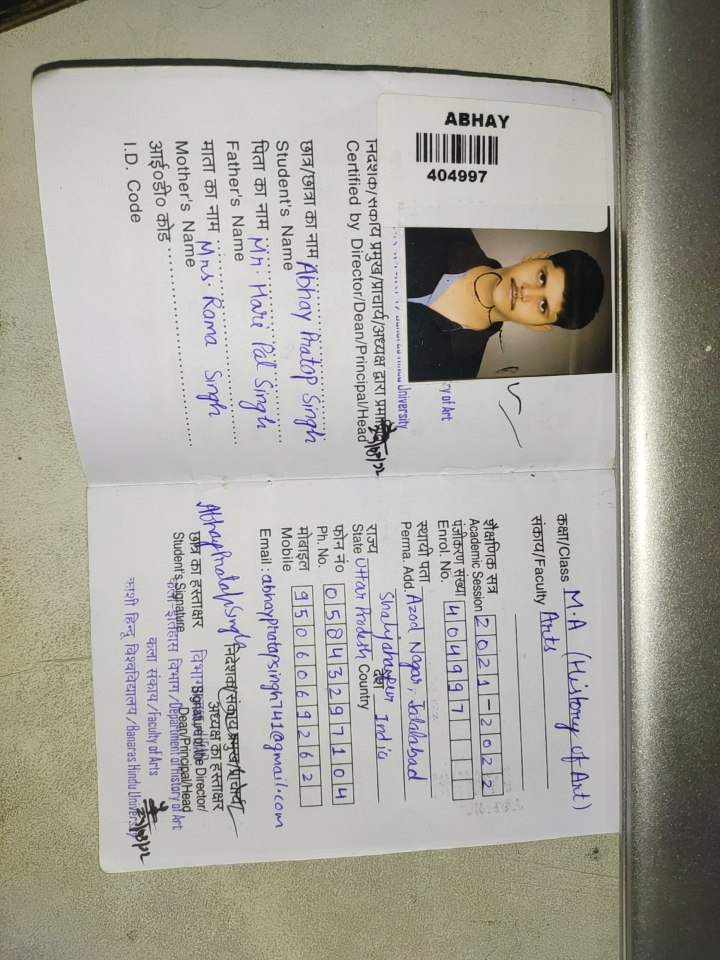 ABHAY
404997
निदेशक/संकाय प्रमुख/प्राचार्य/अध्यक्ष द्वारा
Certified by Director/Dean/Principal/Head
छात्र/छात्रा का नाम Abhay Pratap Singh
Student's Name
पिता का नाम Mr. Hari Pal Singh
Father's Name
माता का नाम Mrs Rama Singh
Mother's Name
आई०डी० कोड
I.D. Code
कक्षा/Class M.A (History of Art)
संकाय/Faculty Arts
शैक्षणिक सत्र
Academic Session 2021-2022
पंजीकरण संख्या
Enrol. No. 404997
स्थायी पता
Perma. Add. Azad Nagar, Jalalabad
Shahjahanpur
राज्य देश
State Uttar Pradesh Country India
फोन नं०
Ph. No. 05843297104
मोबाइल
Mobile 9506069262
Email : abhaypratapsingh741@gmail.com
AbhayPratapSingh
छात्र का हस्ताक्षर
Student's Signature
निदेशक/संकाय प्रमुख/प्राचार्य/
अध्यक्ष का हस्ताक्षर
Signature of the Director/
Dean/Principal/Head
कला-इतिहास विभाग/Department of History of Art
कला संकाय/Faculty of Arts
काशी हिन्दू विश्वविद्यालय/Banaras Hindu University